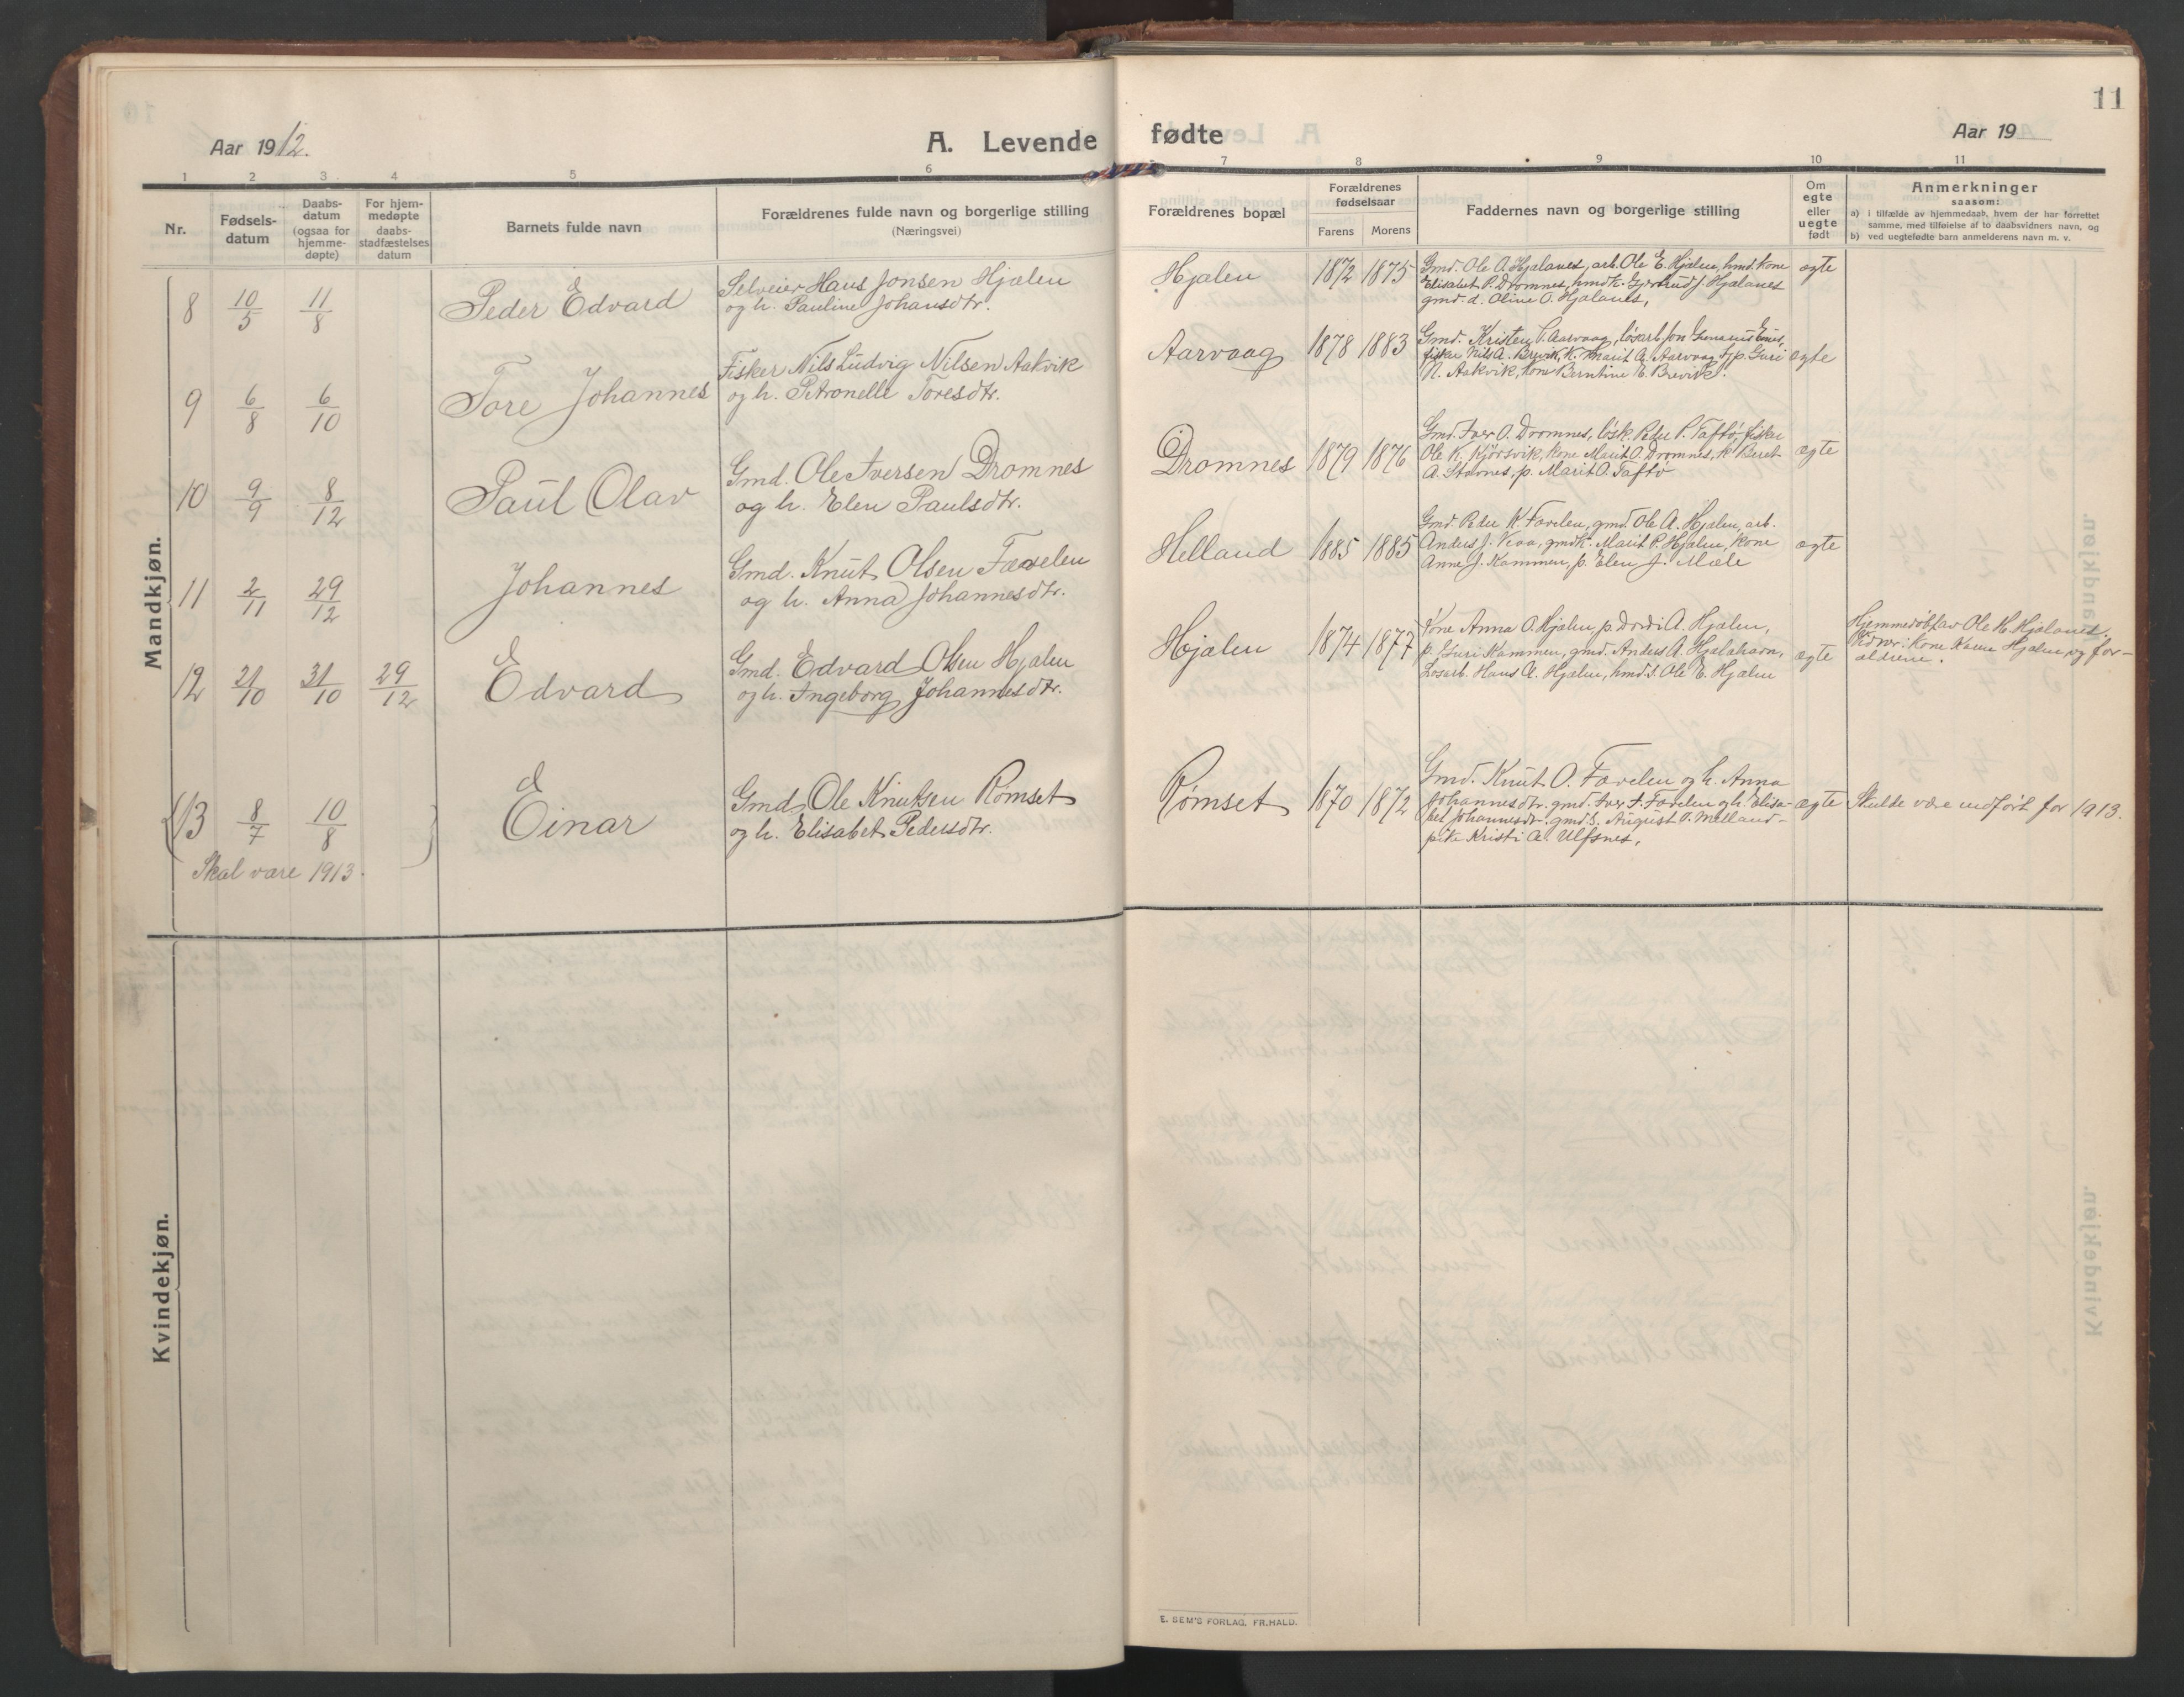 11
Aar 1912.
A. Levende fødte
Aar 19
1 2 3 4 5 6 7 8 9 10 11
Nr.
Fødsels-
datum
Daabs-
datum
(ogsaa for
hjemme-
døpte)
For hjem-
medøpte
daabs-
stadfæstelses
datum
Barnets fulde navn
Forældrenes fulde navn og borgerlige stilling
(Næringsvei)
Forældrenes bopæl
Forældrenes
fødselsaar
Farens Morens
Faddernes navn og borgerlige stilling
Om
egte
eller
uegte
født
Anmerkninger
saasom:
a) i tilfælde av hjemmedaab, hvem der har forrettet
samme, med tilføielse af to daabsvidners navn, og
b) ved uegtefødte barn anmelderens navn m. v.
Mandkjøn.
8 10/5 11/8 Peder Edvard
Selveier Hans Jonsen Hjælen
og h. Pauline Johansdtr.
Hjælen 1872 1875
Gmd. Ole A. Hjelanes, arb. Ole E. Hjælen, hmd. kone
Elisabet P. Dromnes, hmdk. Gjertrud J. Hjelanes
gmd. d. Oline O. Hjalanes,
egte
9 6/8 6/10 Tore Johannes
Fisker Nils Ludvig Nilsen Aakvik
og h. Petronelle Toresdtr.
Aarvaag 1878 1883
Gmd. Kristen T. Aarvaag, løsarb. Jon
fisker Nils A. Brevik, K. Marit A. Aarvaag, Guri
N. Aakvik, kone Berntine E. Brevik.
egte
10 9/9 8/12 Paul Olav
Gmd. Ole Iversen Dromnes
og h. Elen Paulsdtr.
Dromnes 1879 1876
Gmd. Iver O. Dromnes, løsk. Peder P. Taftø, fisker
Ole K. Kjørsvik, kone Marit O. Dromnes, k. Beret
A. p. Marit O. Taftø
egte
11 2/11 29/12 Johannes
Gmd. Knut Olsen Fævelen
og h. Anna Johannesdtr.
Helland 1885 1885
Gmd. Peder K. Fævelen, gmd. Ole A. Hjælen, arb.
Anders J. gmdk. Marit P. Hjælen, kone
Anne J. Kammen, p. Elen J. Mæle
egte
12 21/10 31/10 29/12 Edvard
Gmd. Edvard Olsen Hjælen
og h. Ingeborg Johannesdtr.
Hjælen 1874 1877
Kone Anna O. Hjælen, p. Dordi A. Hjælen,
p. Guri Kammen, gmd. Anders A.
Løsarb. Hans A. Hjælen, hmd. s. Ole E. Hjælen
egte
Hjemmedøbt av Ole H. Hjelanes.
Vidner: Kone Karen Hjælen og for-
ældrene.
13 8/7 10/8 Einar
Skal være 1913.
Gmd. Ole Knutsen Rømset
og h. Elisabet Pedersdtr.
Rømset 1870 1872
Gmd. Knut O. Fævelen og h. Anna
Johannesdtr. gmd. Iver I. Fævelen og h. Elisa-
bet Johannesdtr. gmd. s. August T. Melland-
pike Kristi A. Ulfsnes.
egte
Skulde være indført for 1913.
Kvindekjøn.
E. SEM'S FORLAG, FR.HALD.